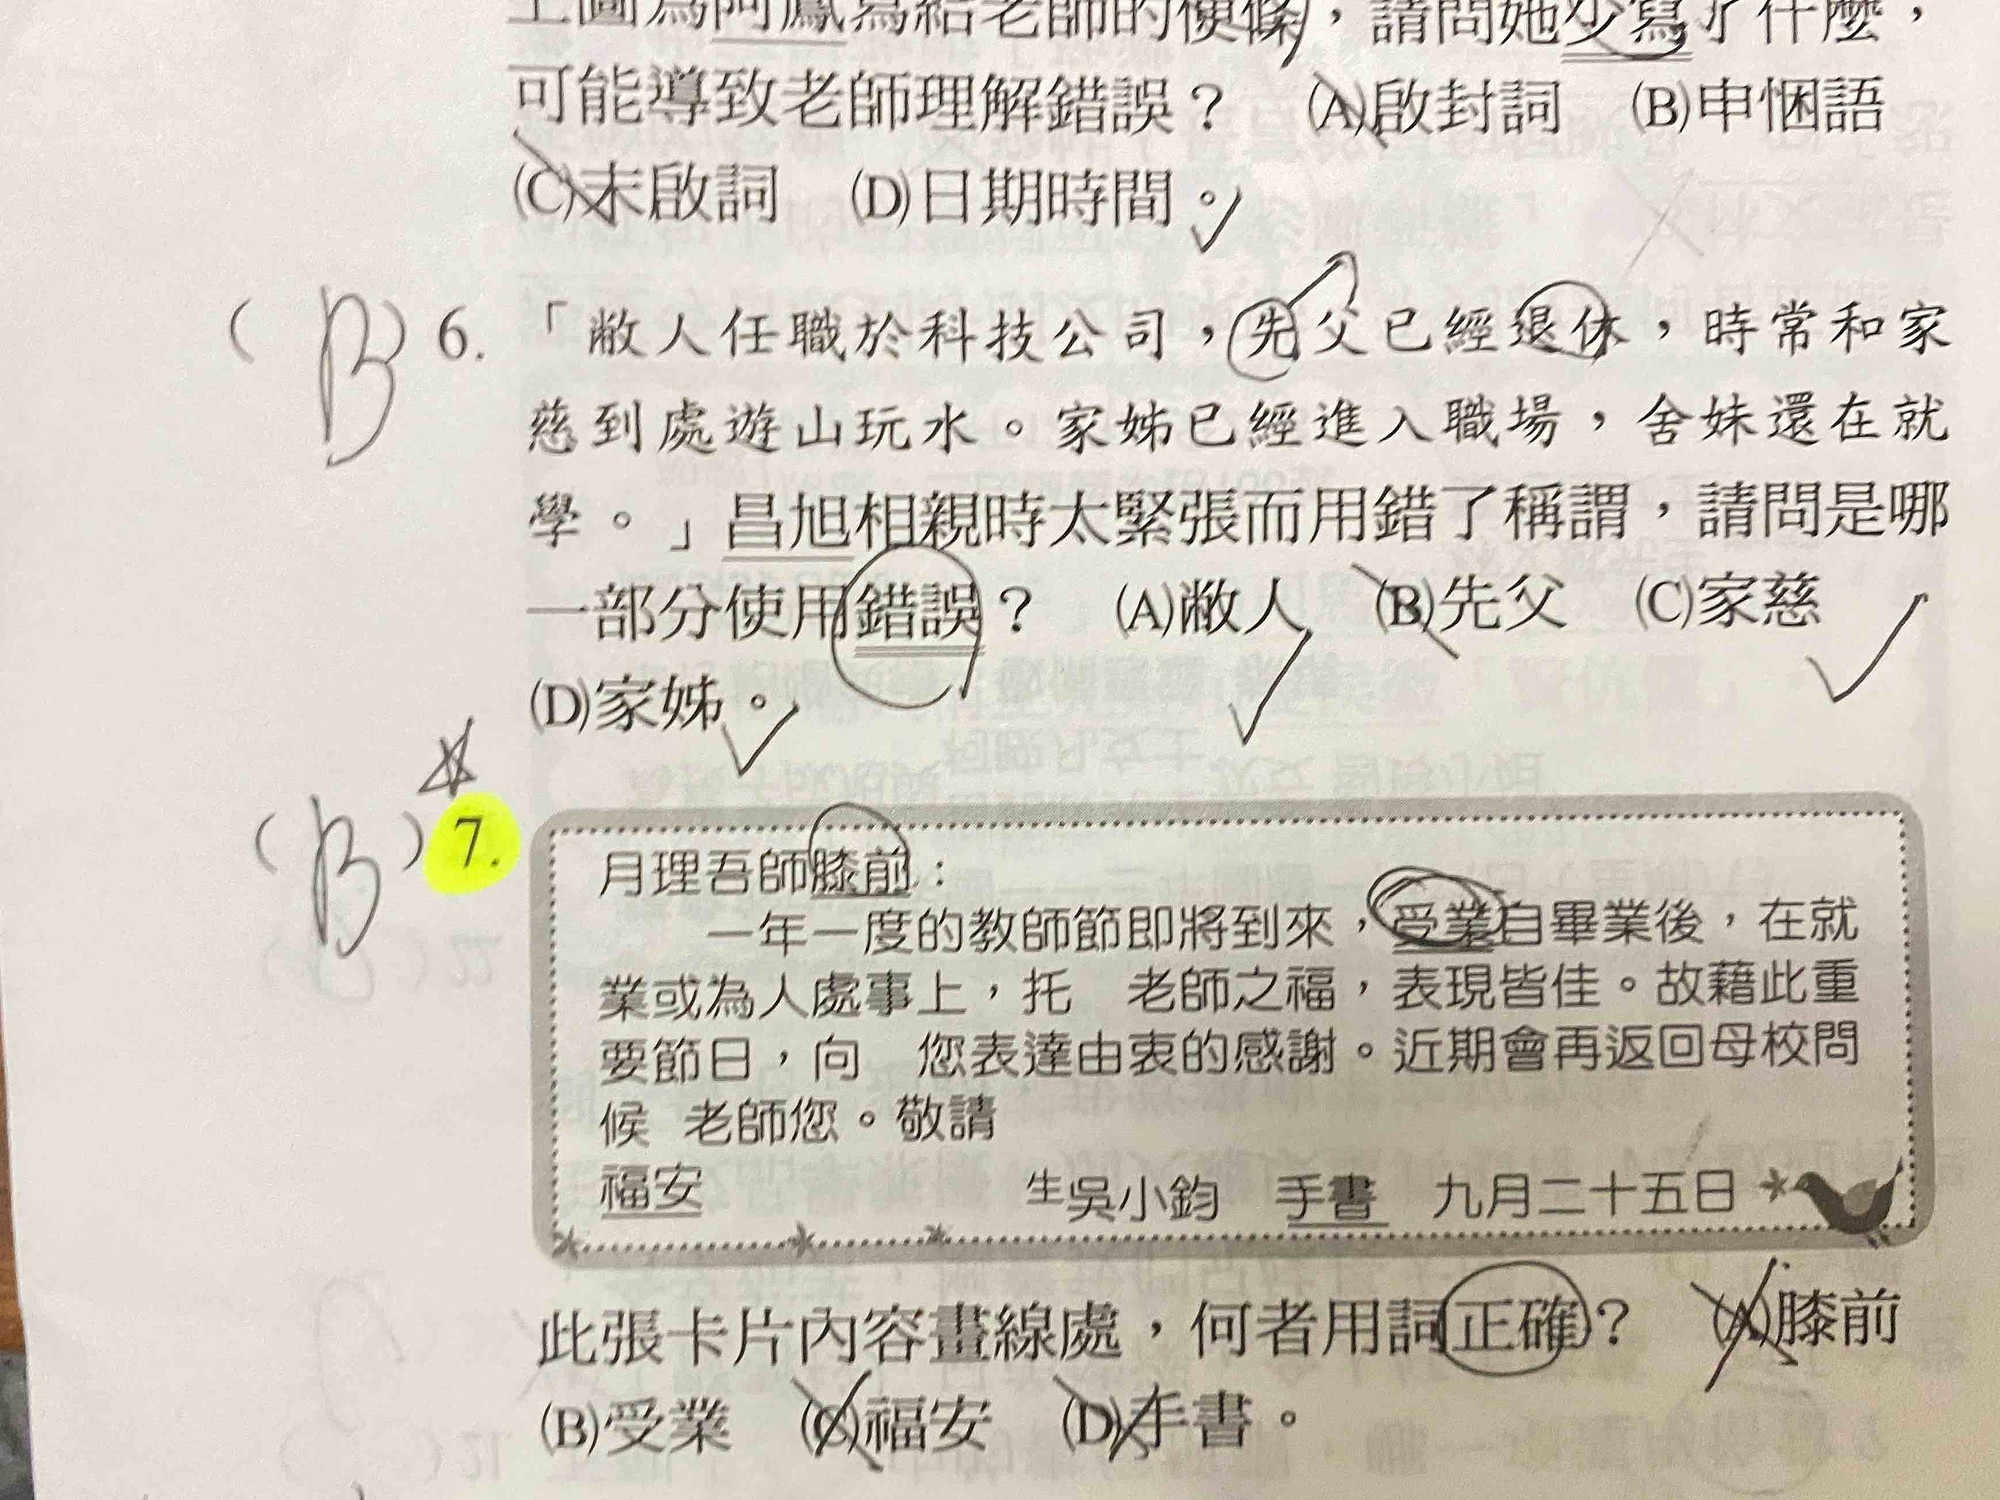 上圖為阿鳳寫給老師的便條，請問她少寫了什麼，
可能導致老師理解錯誤？ (A)啟封詞 (B)申悃語
(C)末啟詞 (D)日期時間。
(B) 6. 「敝人任職於科技公司，先父已經退休，時常和家
慈到處遊山玩水。家姊已經進入職場，舍妹還在就
學。」昌旭相親時太緊張而用錯了稱謂，請問是哪
一部分使用錯誤？ (A)敝人 (B)先父 (C)家慈
(D)家姊。
(B) 7.
月理吾師膝前：
一年一度的教師節即將到來，受業自畢業後，在就
業或為人處事上，托 老師之福，表現皆佳。故藉此重
要節日，向 您表達由衷的感謝。近期會再返回母校問
候 老師您。敬請
福安 生吳小鈞 手書 九月二十五日
此張卡片內容畫線處，何者用詞正確？ (A)膝前
(B)受業 (C)福安 (D)手書。